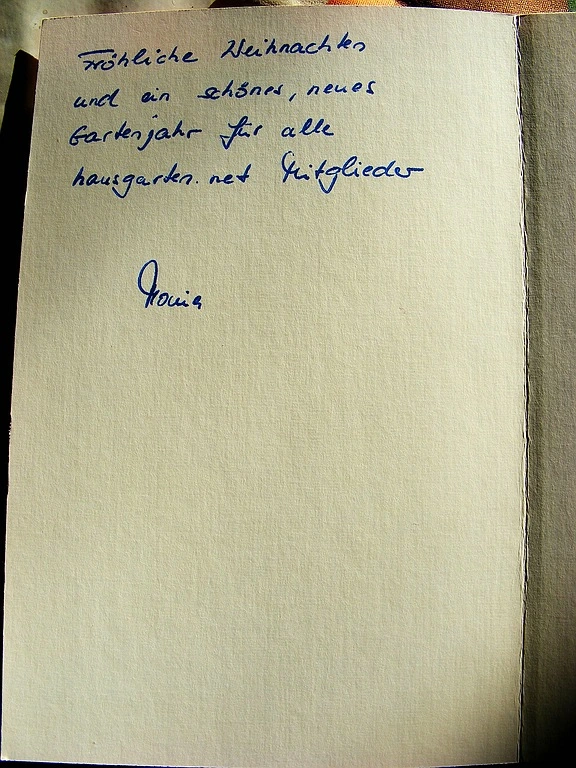 Fröhliche Weihnachten
und ein schönes, neues
Gartenjahr für alle
hausgarten.net Mitglieder
Monia